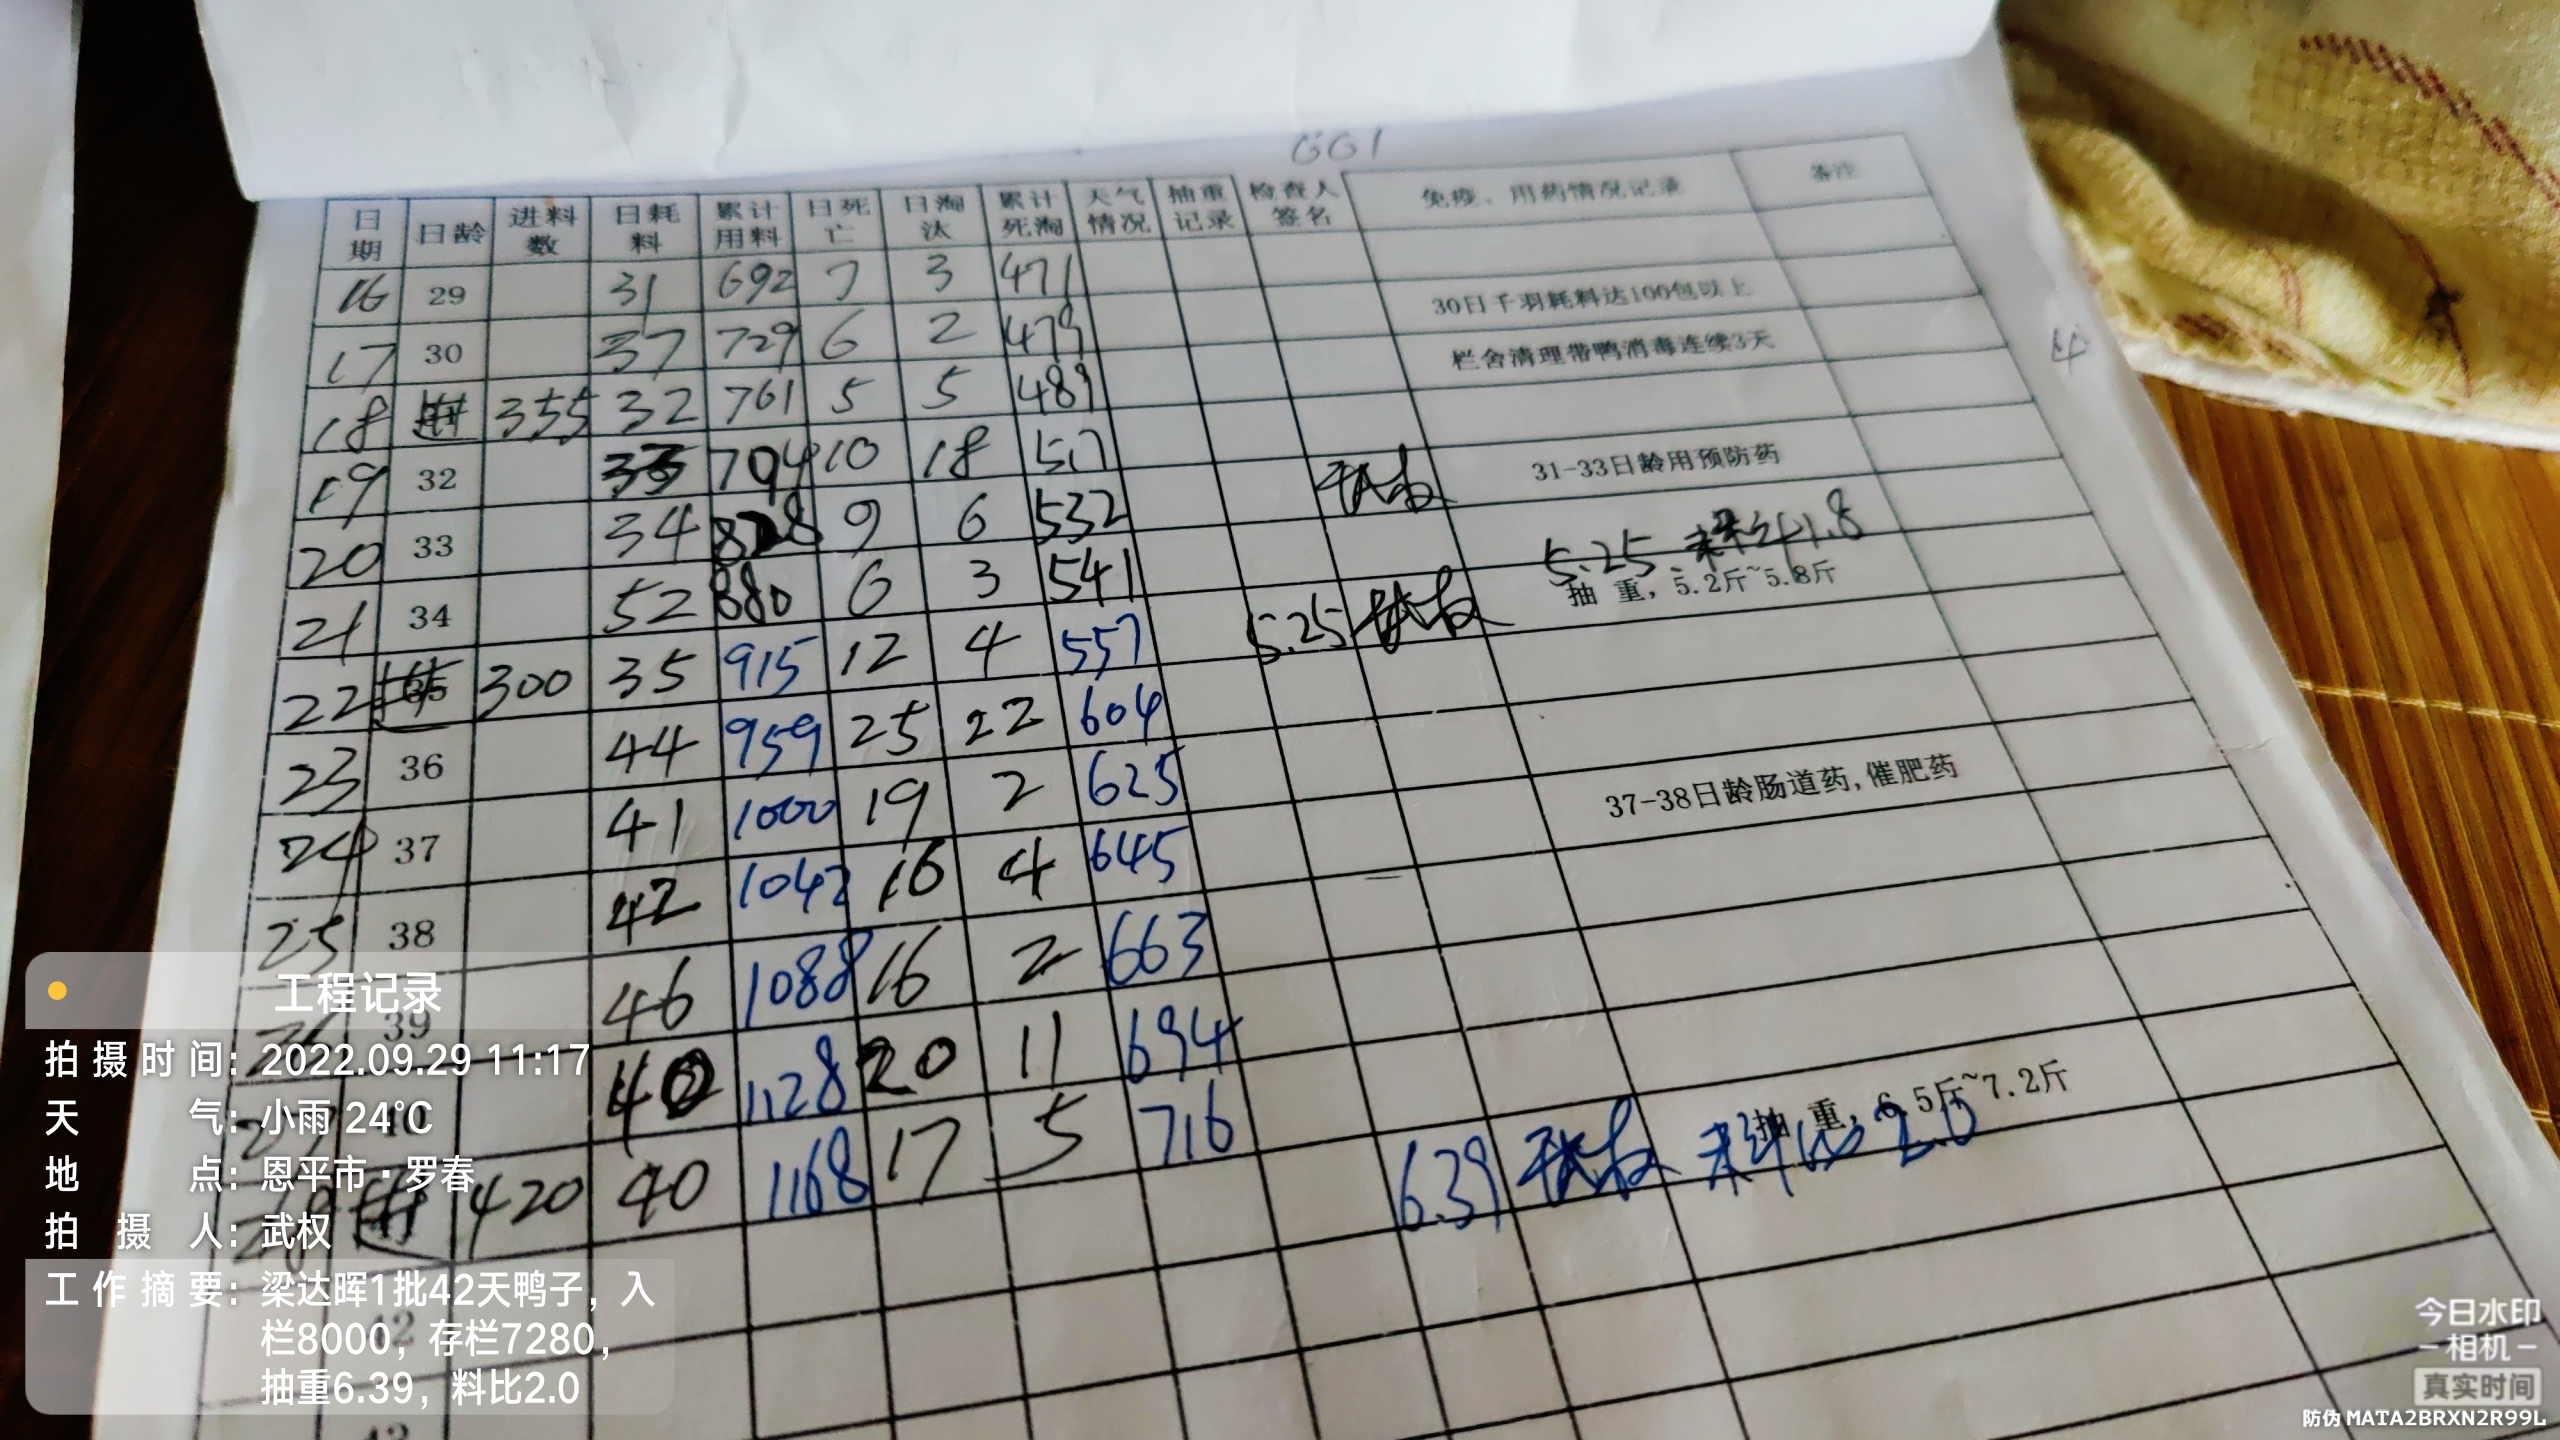 GG1
日期 日龄 进料数 日耗料 累计用料 日死亡 日淘汰 累计死淘 天气情况 抽重记录 检查人签名 免疫、用药情况记录 备注
16 29 31 692 7 3 471
30日千羽耗料达100包以上
17 30 37 729 6 2 479
栏舍清理带鸭消毒连续3天
18 进 355 32 761 5 5 489
19 32 33 794 10 18 517
31-33日龄用预防药
20 33 34 828 9 6 532
5.25 料比1.8
21 34 52 880 6 3 541 5.25 武权
抽 重，5.2斤~5.8斤
22 35 300 35 915 12 4 557
23 36 44 959 25 22 604
24 37 41 1000 19 2 625
37-38日龄肠道药,催肥药
25 38 42 1042 16 4 645
26 39 46 1088 16 2 663
27 40 40 1128 20 11 694
抽 重，6.5斤~7.2斤
28 进 420 40 1168 17 5 716 6.39 武权 料比2.0
42
43
工程记录
拍摄时间：2022.09.29 11:17
天气：小雨 24℃
地点：恩平市·罗春
拍摄人：武权
工作摘要：梁达晖1批42天鸭子，入
栏8000，存栏7280，
抽重6.39，料比2.0
今日水印
相机
真实时间
防伪 MATA2BRXN2R99L